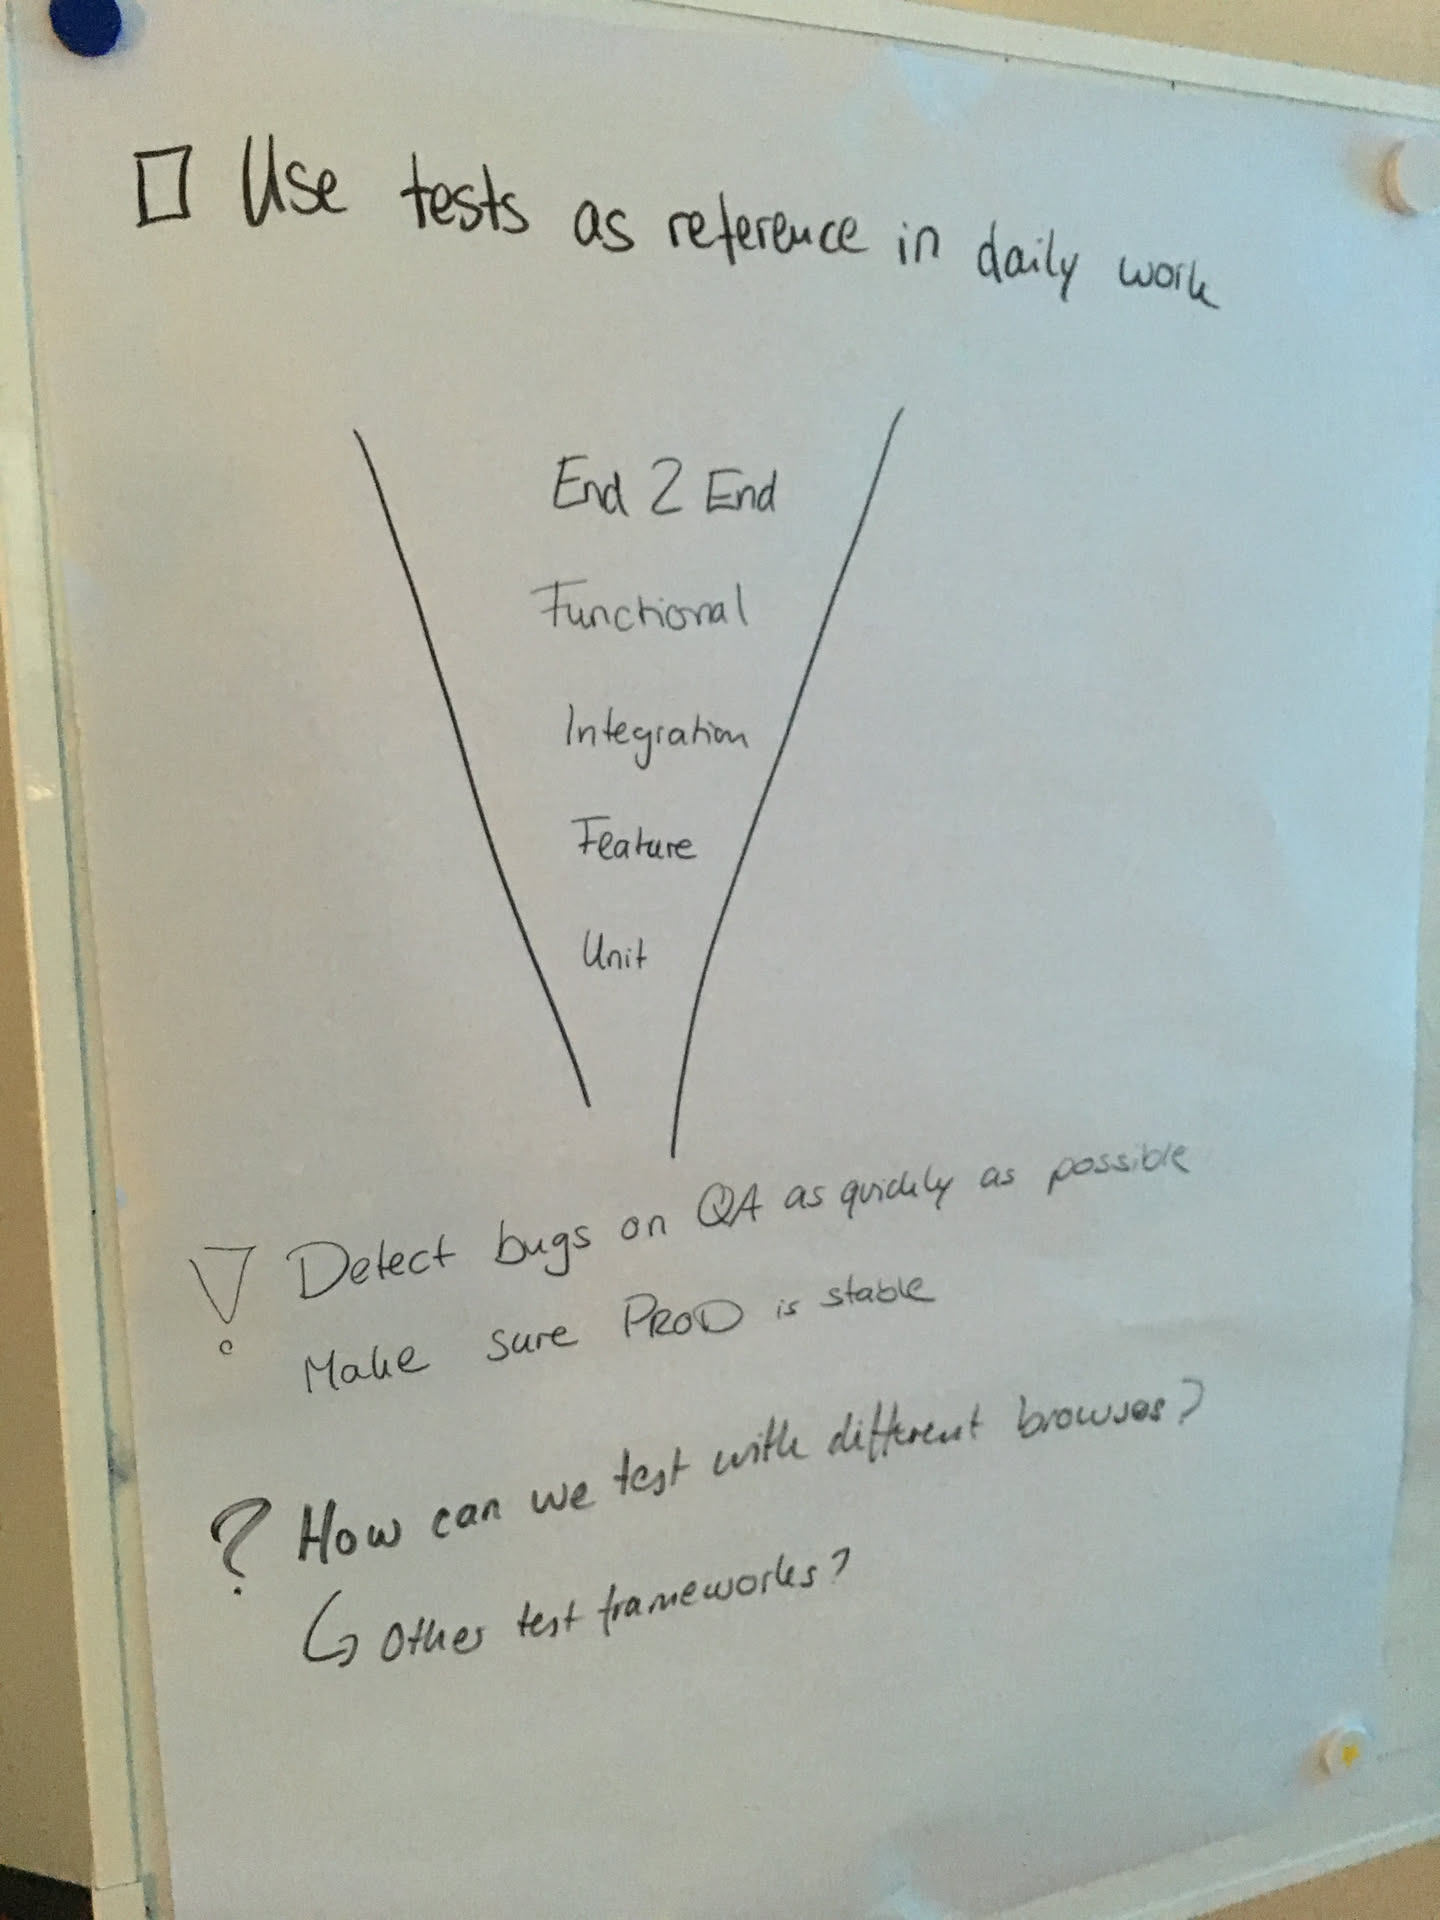 □ Use tests as reference in daily work
End 2 End
Functional
Integration
Feature
Unit
! Detect bugs on QA as quickly as possible
Make sure PROD is stable
? How can we test with different browses?
↳ Other test frameworks?